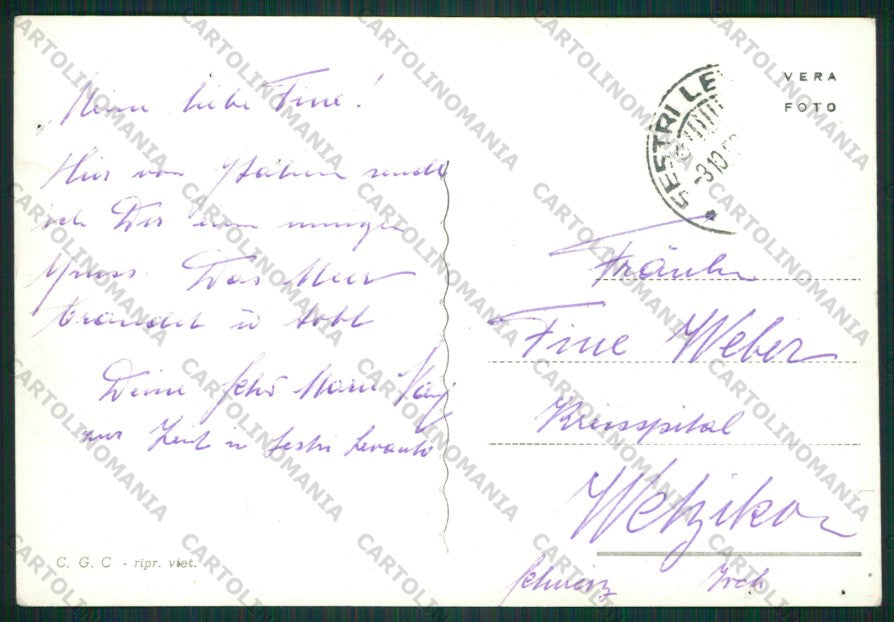 Meine liebe Fine!
Hier von Italien sende
ich Dir einen innigen
Gruss. Das Meer
brandet u tobt
Deine Schw Marie
zur Zeit in Sestri Levante
C. G. C. - ripr. viet.
SESTRI LE
-3.10.5
VERA
FOTO
Fräulein
Fine Weber
Kreisspital
Wetzikon
Schweiz Zrch
CARTOLINOMANIA